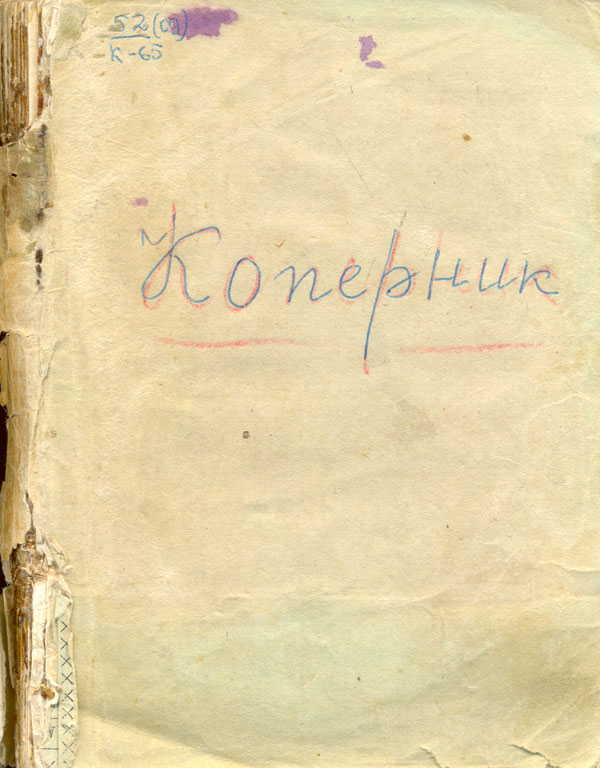 52(09)
К-65
Коперник